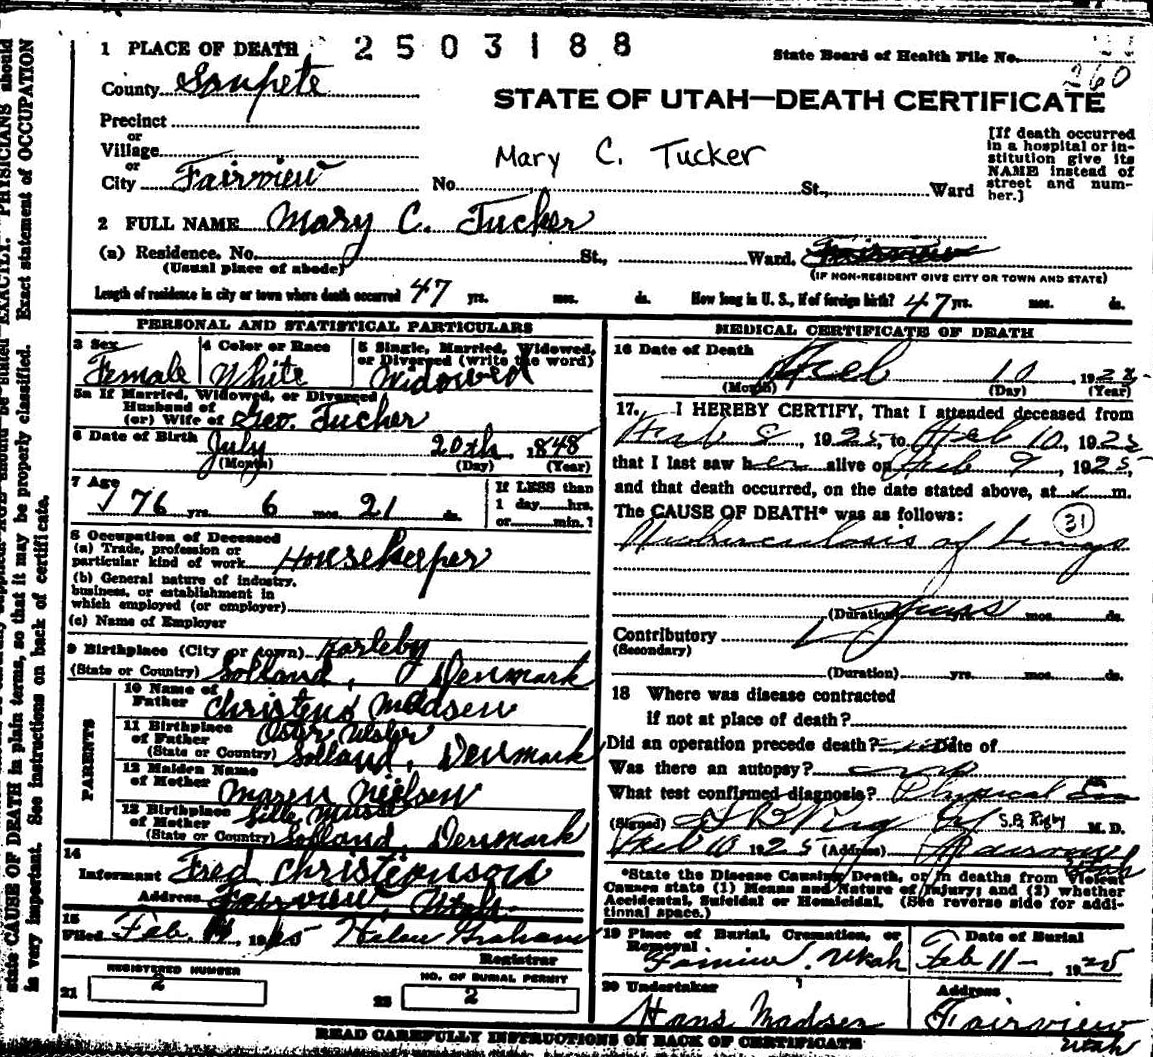 1 PLACE OF DEATH 2503188 State Board of Health File No. 21
260
County Sanpete
STATE OF UTAH—DEATH CERTIFICATE
Precinct
or
Village
or
City Fairview No. St., Ward
Mary C. Tucker
[If death occurred in a hospital or institution give its NAME instead of street and number.]
2 FULL NAME Mary C. Tucker
(a) Residence. No. St., Ward. Fairview
(Usual place of abode) (IF NON-RESIDENT GIVE CITY OR TOWN AND STATE)
Length of residence in city or town where death occurred 47 yrs. mos. ds. How long in U. S., if of foreign birth? 47 yrs. mos. ds.
PERSONAL AND STATISTICAL PARTICULARS
3 Sex Female
4 Color or Race White
5 Single, Married, Widowed, or Divorced (write the word) Widowed
5a If Married, Widowed, or Divorced
Husband of
(or) Wife of Geo. Tucker
6 Date of Birth July 20th, 1848
(Month) (Day) (Year)
7 Age 76 yrs. 6 mos. 21 ds.
If LESS than
1 day hrs.
or min.?
8 Occupation of Deceased
(a) Trade, profession or
particular kind of work Housekeeper
(b) General nature of industry,
business, or establishment in
which employed (or employer)
(c) Name of Employer
9 Birthplace (City or town) Karleby
(State or Country) Solland, Denmark
PARENTS
10 Name of Father Christens Madsen
11 Birthplace of Father Oster Ulslev
(State or Country) Solland, Denmark
12 Maiden Name of Mother Maren Nielsen
13 Birthplace of Mother Sille Musse
(State or Country) Solland, Denmark
14
Informant Fred Christianson
Address Fairview, Utah.
15
Filed Feb. 1925 Helen Graham
Registrar
REGISTERED NUMBER
21 2
NO. OF BURIAL PERMIT
22 2
MEDICAL CERTIFICATE OF DEATH
16 Date of Death Feb 10 1925
(Month) (Day) (Year)
17. I HEREBY CERTIFY, That I attended deceased from
Feb 8, 1925, to Feb 10, 1925
that I last saw her alive on Feb 9, 1925,
and that death occurred, on the date stated above, at m.
The CAUSE OF DEATH* was as follows:
31
Tuberculosis of lungs
(Duration) years yrs. mos. ds.
Contributory
(Secondary)
(Duration) yrs. mos. ds.
18 Where was disease contracted
if not at place of death?
Did an operation precede death? Date of
Was there an autopsy? no
What test confirmed diagnosis? Physical
(Signed) S.B. Rigby M. D.
Feb 10 1925 (Address) Utah
*State the Disease Causing Death, or in deaths from Violent
Causes state (1) Means and Nature of Injury; and (2) whether
Accidental, Suicidal or Homicidal. (See reverse side for additional space.)
19 Place of Burial, Cremation, or Removal Fairview, Utah
Date of Burial Feb 11 - 1925
20 Undertaker Hans Madsen
Address Fairview Utah
READ CAREFULLY INSTRUCTIONS ON BACK OF CERTIFICATE
PHYSICIANS should
state CAUSE OF DEATH in plain terms, so that it may be properly classified. Exact statement of OCCUPATION
is very important. See instructions on back of certificate.